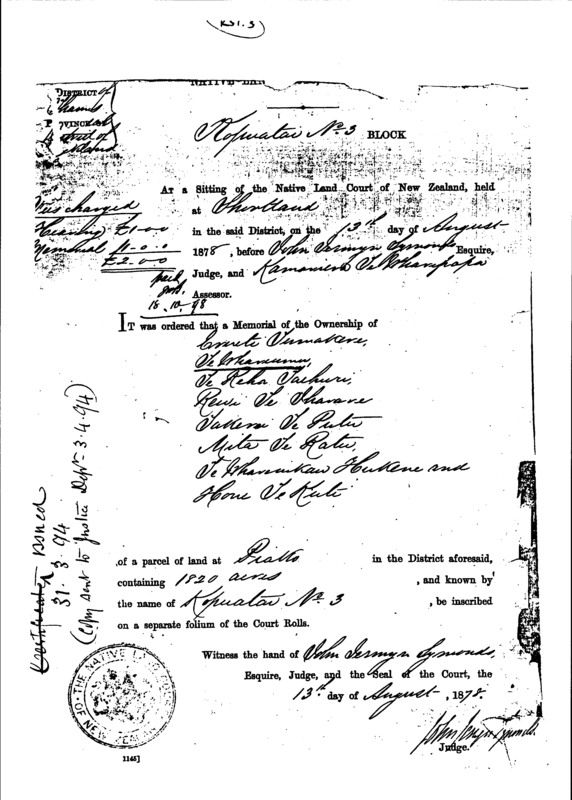 KS1.3
NATIVE LAN
DISTRICT of
Thames
PROVINCIAL
District of
Auckland
Kopuatai No 3 BLOCK
AT a Sitting of the Native Land Court of New Zealand, held
at Shortland
in the said District, on the 13th day of August
1878, before John Jermyn Symonds Esquire,
Judge, and Te Wharepapa
Assessor.
Fees charged
Hearing £1-0-0
Memorial 1-0-0
£2-0-0
paid
18.10.98
IT was ordered that a Memorial of the Ownership of
Te Reha Taehuri,
Rewi Te
Te Putu
Mita Te Ratu,
Hukene and
Hone Te Kuti
of a parcel of land at Piako in the District aforesaid,
containing 1820 acres, and known by
the name of Kopuatai No. 3, be inscribed
on a separate folium of the Court Rolls.
Witness the hand of John Jermyn Symonds,
Esquire, Judge, and the Seal of the Court, the
13th day of August, 1878.
John Jermyn Symonds.
Judge.
Certificate issued
31.3.94
(Copy sent to Justice Dept 3.4.94)
THE NATIVE LAND COURT OF NEW ZEALAND
1145]